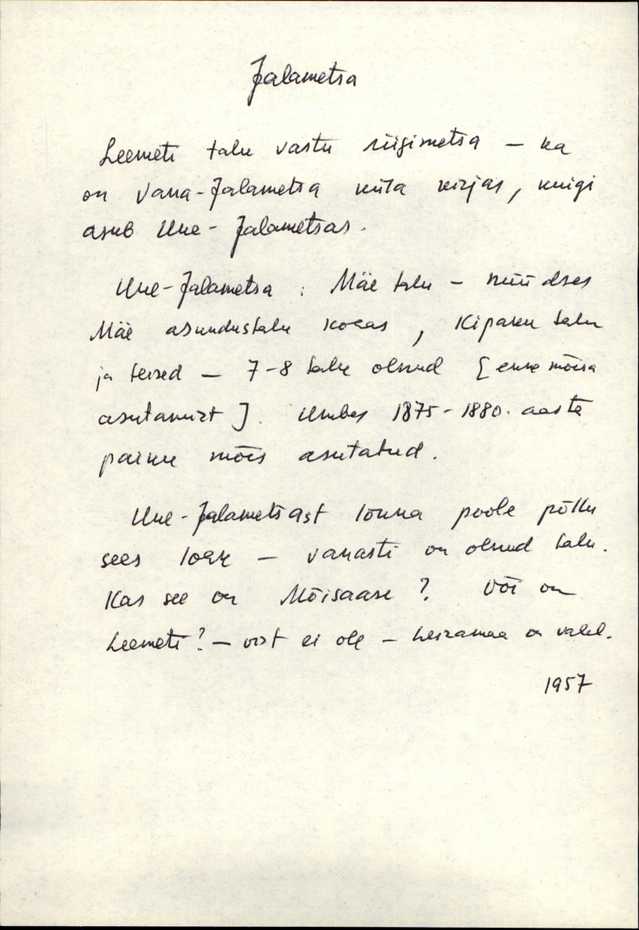 Jalametsa
Leemeti talu vastu riigimetsa - ka
on Vana-Jalametsa küla kirjas, kuigi
asub Uue-Jalametsas.
Uue-Jalametsa : Mäe talu - nüüdses
Mäe asundustalu kohas, Kiparu talu
ja teised - 7-8 talu olnud [enne mõisa
asutamist]. Umbes 1875-1880. aasta
paiku mõis asutatud.
Uue-Jalametsast lõuna poole põllu
sees - vanasti on olnud talu.
Kas see on Mõisaase? Või on
Leemeti? - vist ei ole - heinamaa on vahel.
1957